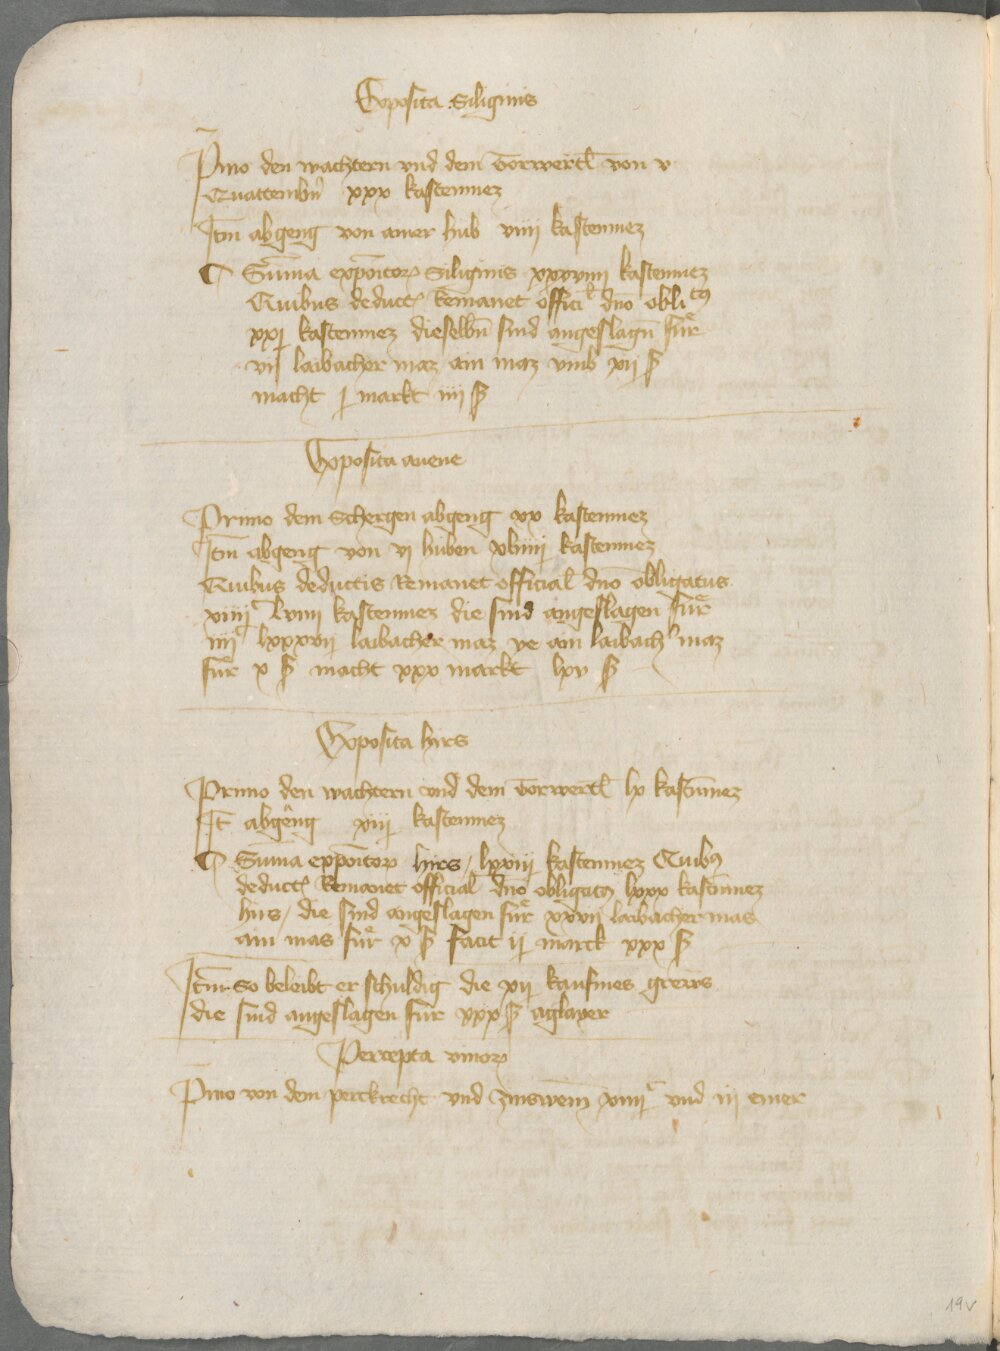 Exposita Siliginis
Pmo den wachtern vnd dem Torwertl von v
Quattembern xxx kastenmez
Itm abgeng von ainer hub viiij kastenmez
Suma expoitor Siliginis xxxviiij kastenmez
Quibus deduct Remanet offici dno obli
xxj kastenmez dieselbn sind angeslagn für
vij laibacher maz ain maz vmb xij ß
macht j markt iiij ß
Exposita auene
Primo dem Schergen abgeng xx kastenmez
Itm abgeng von vj huben kastenmez
Quibus deductis Remanet official dno obligatus
xiiij lviiij kastenmez die sind angeslagen für
iiij lxxxvij laibacher maz ye ain laibach maz
für x ß macht xxx markt lxv ß
Exposita hirs
Primo den wachtern vnd dem Torwertl lx kastnmez
It abgeng xiij kastenmez
Suma expoitor hirs lxxiij kastenmez Quib
deduct Remanet official dno obligat lxxx kastnmez
hirs die sind angeslagen für xxvij laibacher mas
ain mas für x ß facit ij marck xxx ß
Itm so beleibt er schuldig die xij kaufmes
die sind angeslagen für xxx ß aglayer
Percepta vinor
Pmo von dem perckrecht vnd zinswein xiiij vnd iij emer
19v